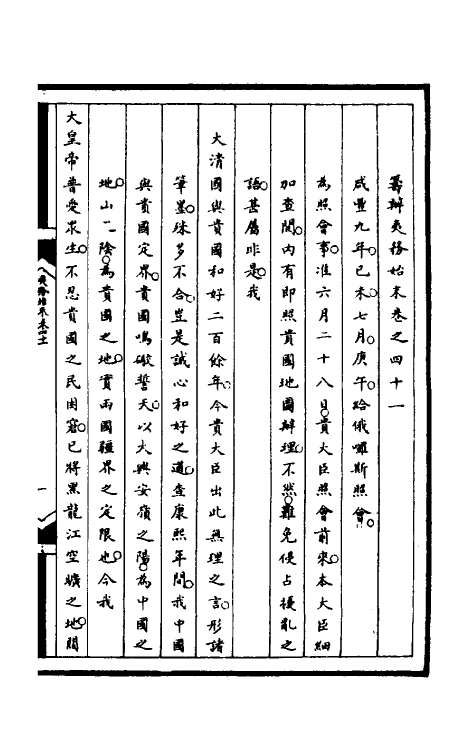 籌辦夷務始末卷之四十一
咸豐九年己未七月庚午給俄囉斯照會
為照會事准六月二十八日貴大臣照會前來本大臣細
加查閱內有即照貴國地圖辦理不然難免侵占擾亂之
語甚屬非是我
大清國與貴國和好二百餘年今貴大臣出此無理之言形諸
筆墨殊多不合豈是誠心和好之道查康熙年間我中國
與貴國定界貴國鳴礮誓天以大興安嶺之陽為中國之
地山之陰為貴國之地實兩國疆界之定限也今我
大皇帝普愛眾生不忍貴國之民困窘已將黑龍江空曠之地間
夷務始末卷四十一
一